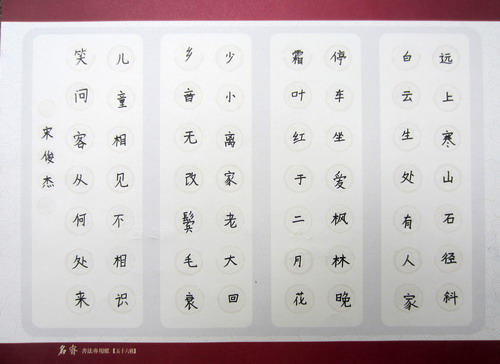 远上寒山石径斜
白云生处有人家
停车坐爱枫林晚
霜叶红于二月花
少小离家老大回
乡音无改鬓毛衰
儿童相见不相识
笑问客从何处来
宋俊杰
名睿 書法專用紙【五十六格】